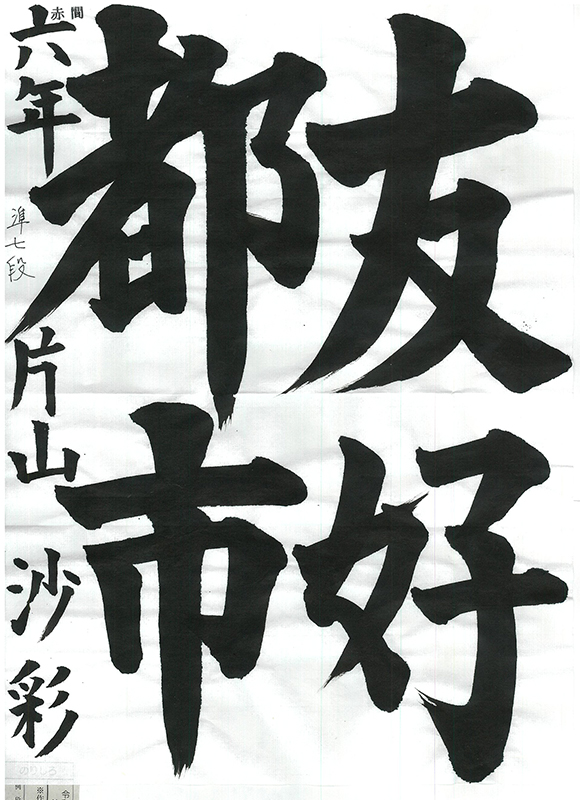 友好
都市
赤間
六年 準七段 片山 沙彩
のりしろ